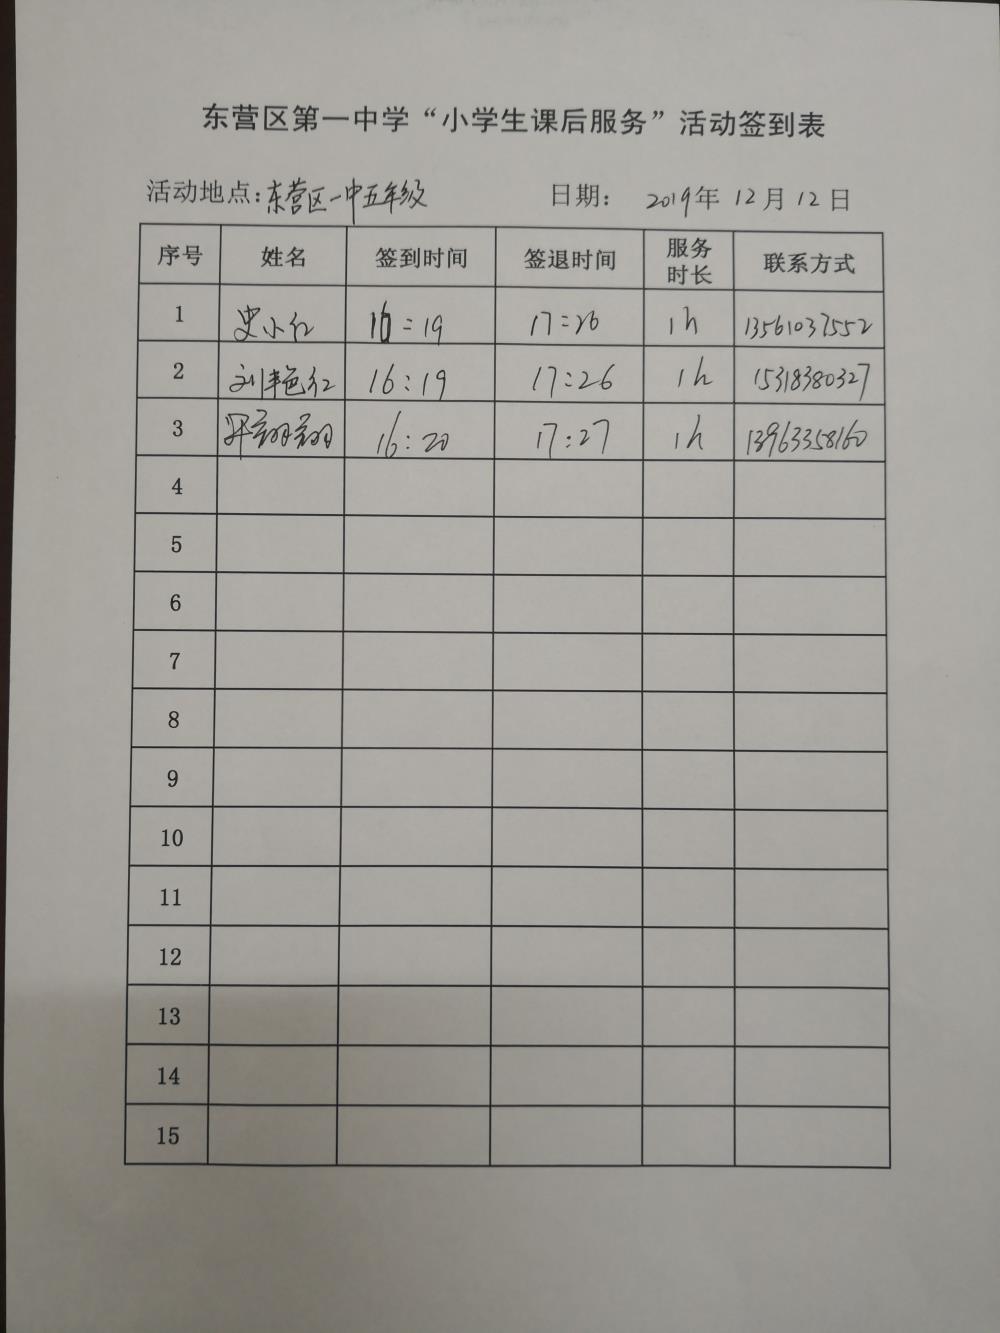 东营区第一中学“小学生课后服务”活动签到表
活动地点：东营区一中五年级 日期： 2019年 12月 12日
序号 姓名 签到时间 签退时间 服务时长 联系方式
1 史小红 16:19 17:26 1h 13561037552
2 刘艳红 16:19 17:26 1h 15318380327
3 翔翔 16:20 17:27 1h 13963358160
4
5
6
7
8
9
10
11
12
13
14
15